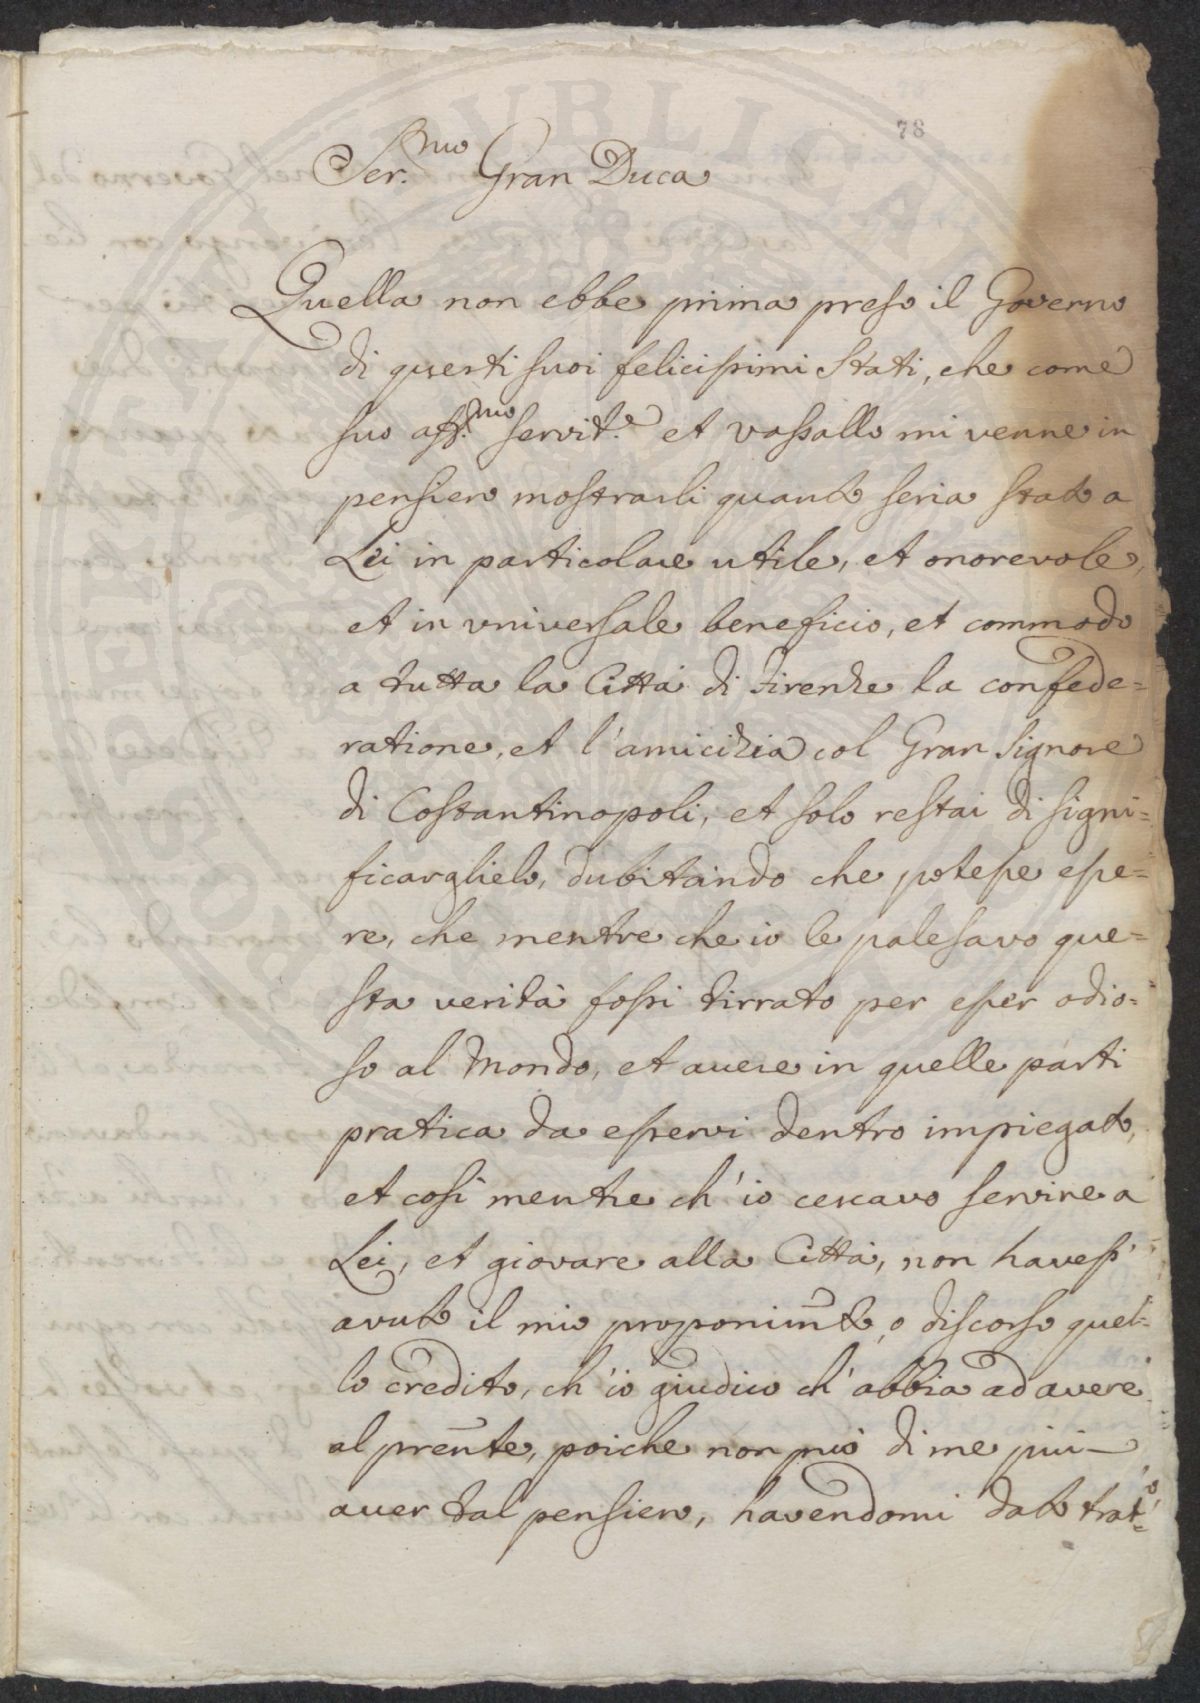 78
Ser.mo Gran Duca
Quella non ebbe prima preso il Governo
di questi suoi felicissimi Stati, che come
suo aff.mo servit.e et vassallo mi venne in
pensiero mostrarli quanto seria stato a
Lei in particolare utile, et onorevole,
et in vniversale beneficio, et commodo
a tutta la Città di Firenze la confede=
ratione, et l'amicizia col Gran Signore
di Costantinopoli, et solo restai di signi=
ficarglielo, dubitando che potesse esse=
re, che mentre che io le palesavo que=
sta verità fossi tirrato per esser odio=
so al Mondo, et avere in quelle parti
pratica da esservi dentro impiegato,
et così mentre ch'io cercavo servire a
Lei, et giovare alla Città, non havess'
avuto il mio proponimto, o discorso quel=
lo credito, ch'io giudico ch'abbia ad avere
al prente, poiche non può di me più
aver tal pensiero, havendomi dato trat=